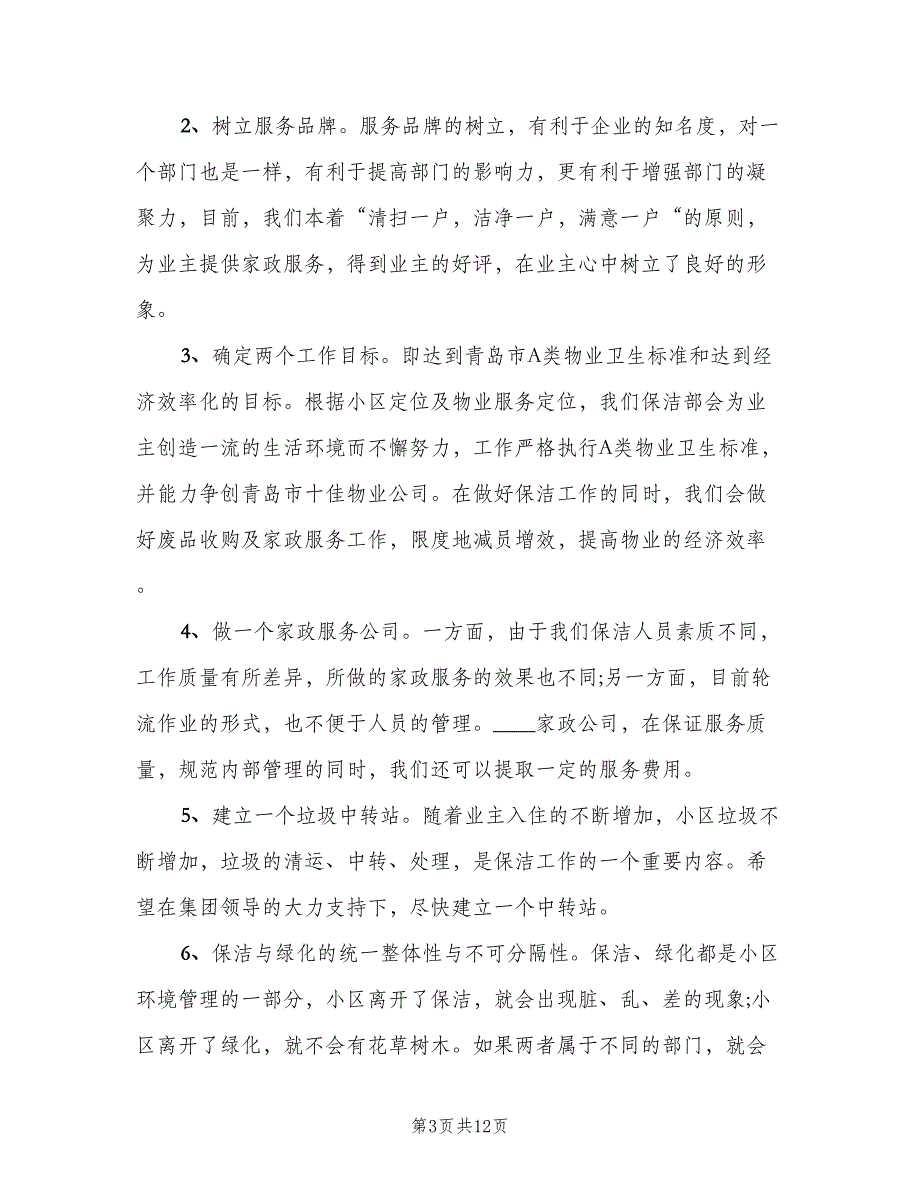 2、树立服务品牌。服务品牌的树立，有利于企业的知名度，对一
个部门也是一样，有利于提高部门的影响力，更有利于增强部门的凝
聚力，目前，我们本着“清扫一户，洁净一户，满意一户“的原则，
为业主提供家政服务，得到业主的好评，在业主心中树立了良好的形
象。
3、确定两个工作目标。即达到青岛市A类物业卫生标准和达到经
济效率化的目标。根据小区定位及物业服务定位，我们保洁部会为业
主创造一流的生活环境而不懈努力，工作严格执行A类物业卫生标准，
并能力争创青岛市十佳物业公司。在做好保洁工作的同时，我们会做
好废品收购及家政服务工作，限度地减员增效，提高物业的经济效率
。
4、做一个家政服务公司。一方面，由于我们保洁人员素质不同，
工作质量有所差异，所做的家政服务的效果也不同;另一方面，目前轮
流作业的形式，也不便于人员的管理。____家政公司，在保证服务质
量，规范内部管理的同时，我们还可以提取一定的服务费用。
5、建立一个垃圾中转站。随着业主入住的不断增加，小区垃圾不
断增加，垃圾的清运、中转、处理，是保洁工作的一个重要内容。希
望在集团领导的大力支持下，尽快建立一个中转站。
6、保洁与绿化的统一整体性与不可分隔性。保洁、绿化都是小区
环境管理的一部分，小区离开了保洁，就会出现脏、乱、差的现象;小
区离开了绿化，就不会有花草树木。如果两者属于不同的部门，就会
第3页共12页